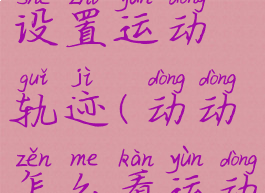 shè zhì yùn dòng
设置运动
guǐ jì dòng dòng
轨迹(动动
zěn me kàn yùn dòng
怎么看运动